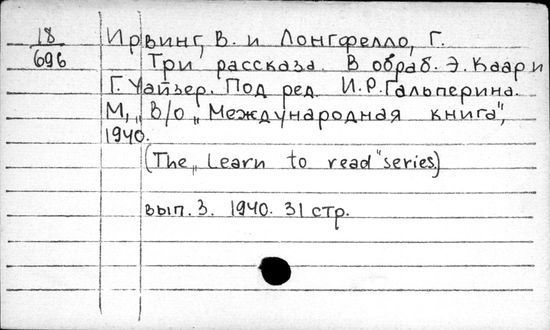 18 Ирвинг, В. и Лонгфелло, Г.
696 Три рассказа. В обраб. Э. Каар и
Г. Уайзер. Под ред. И.Р. Гальперина.
М., В/О „Международная книга",
1940.
(The „Learn to read" series)
вып. 3. 1940. 31 стр.